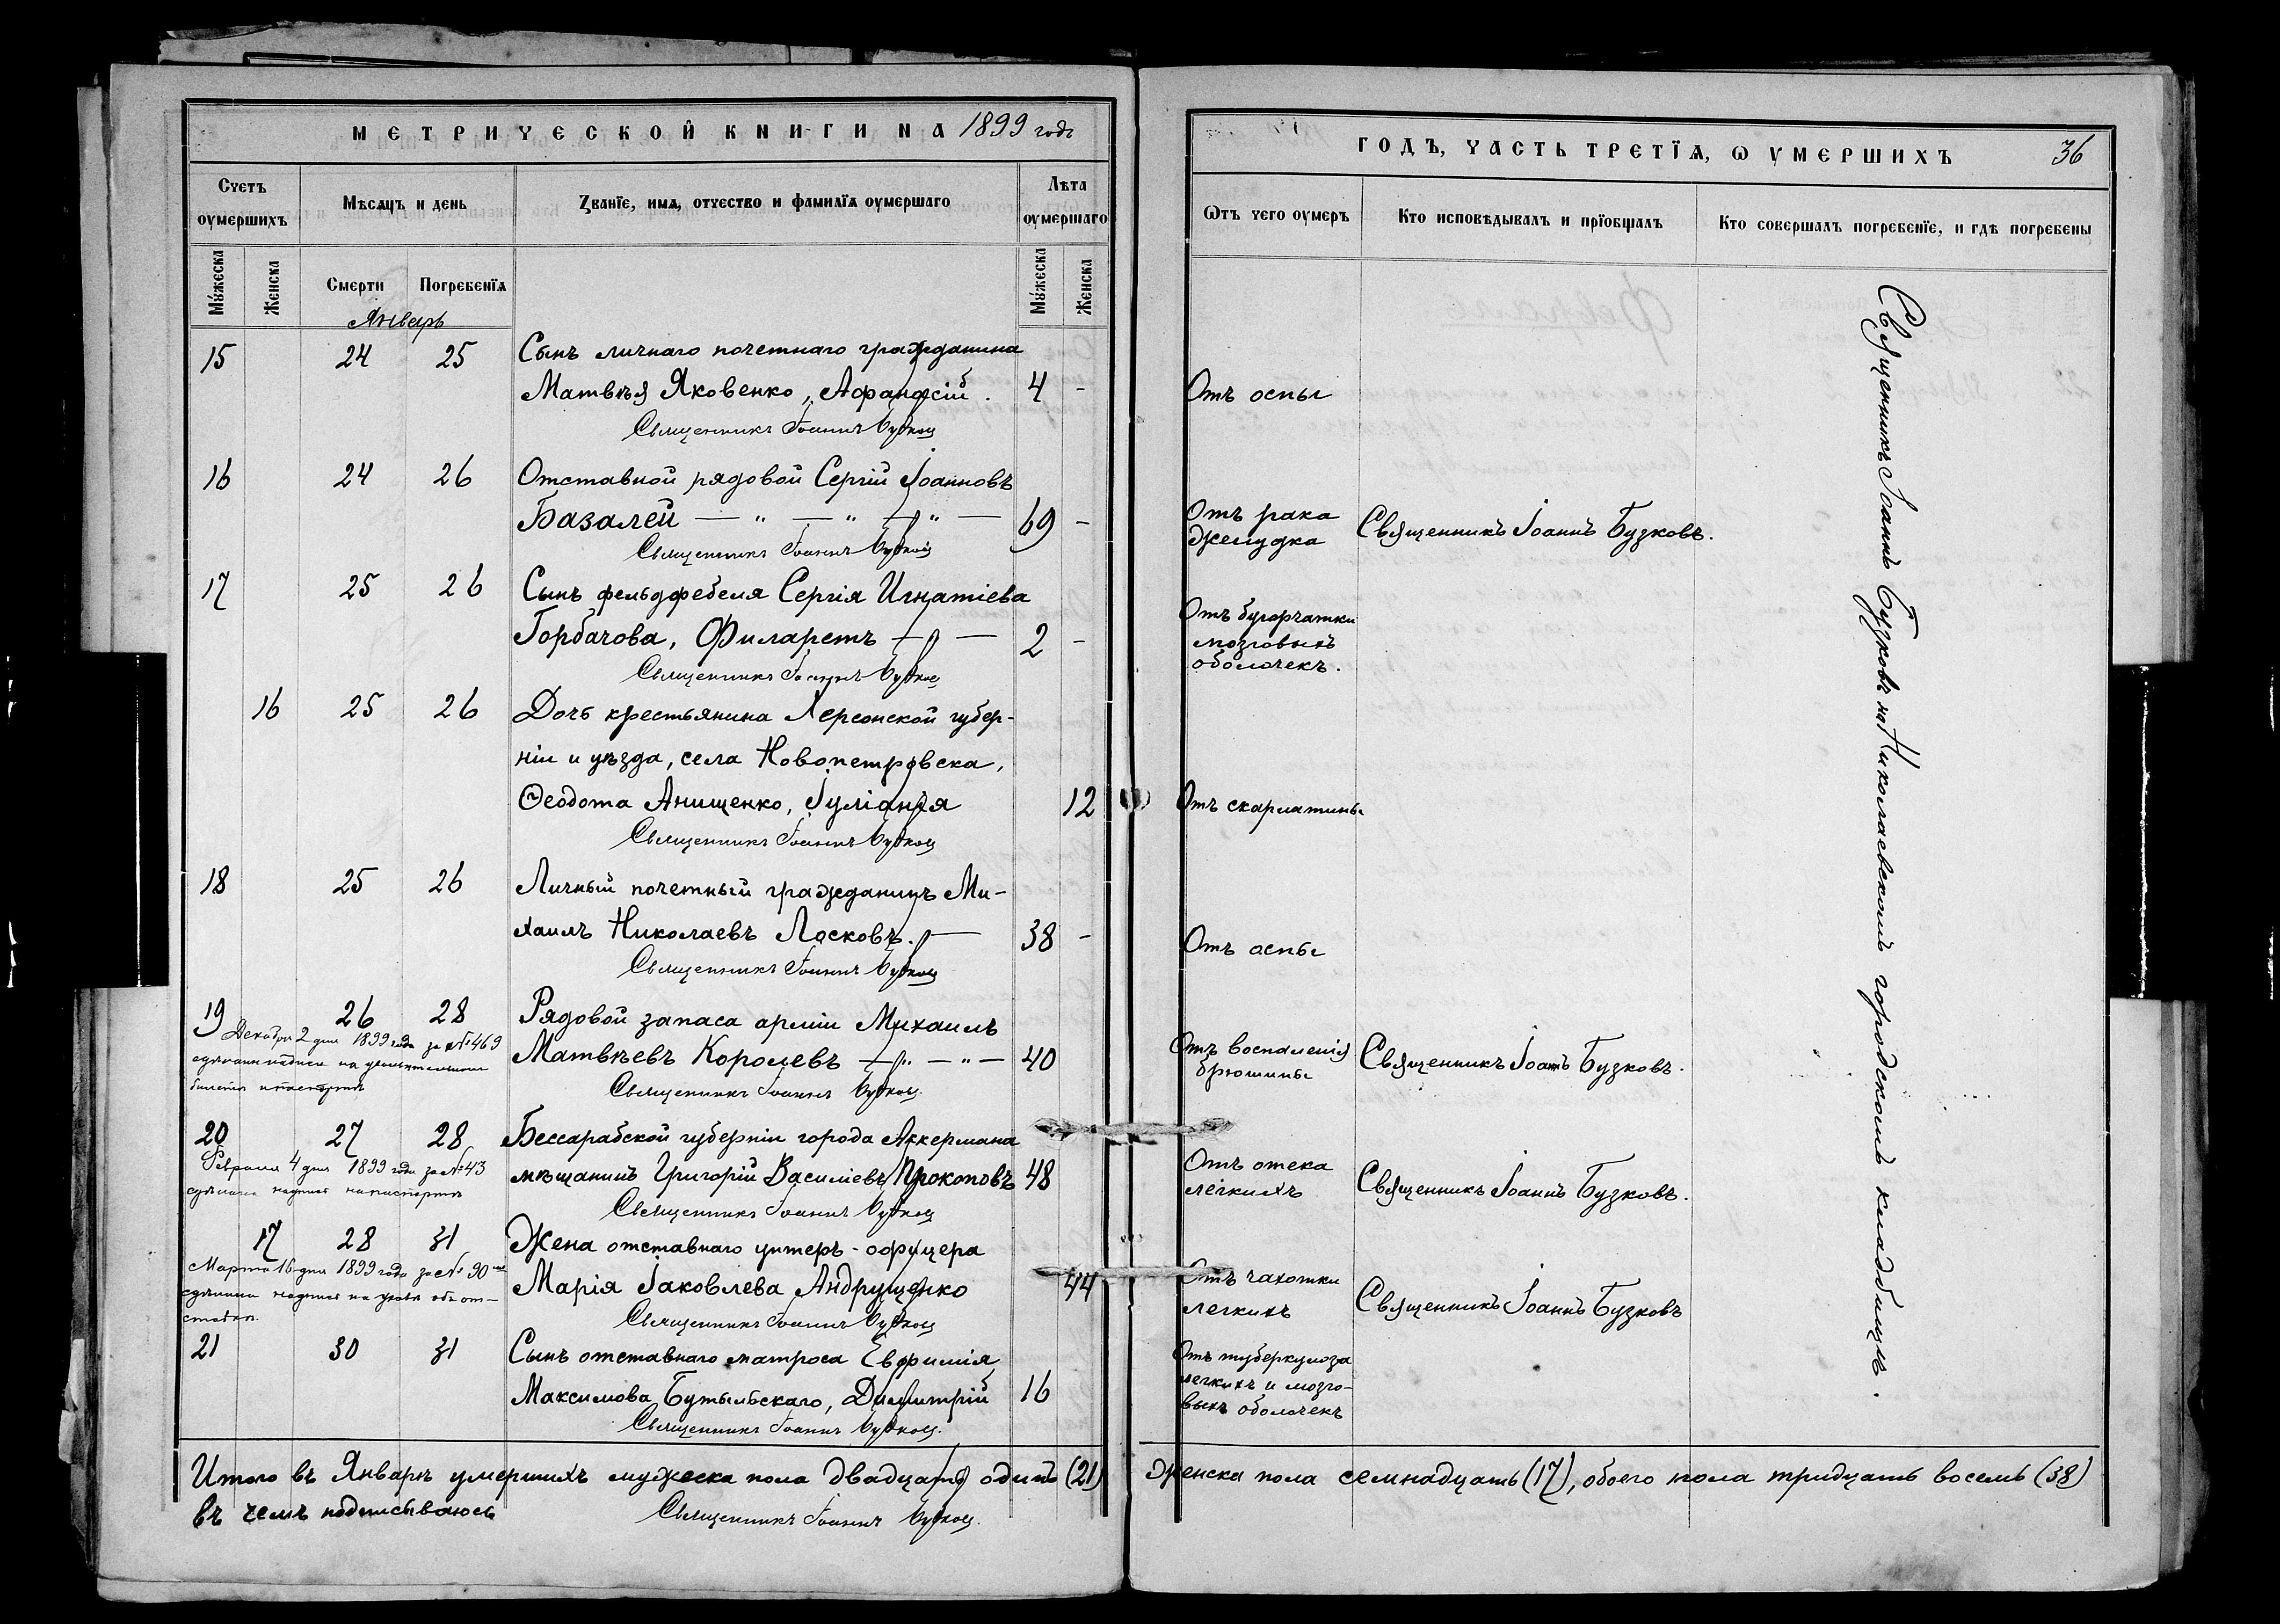 МЕТРИЧЕСКОЙ КНИГИ НА 1899 годъ
Счетъ оумершихъ
Мѣсяцъ и день
Званїе, имѧ, отчество и фамилїѧ оумершаго
Лѣта оумершаго
Мꙋжеска
Женска
Смерти
Погребенїѧ
Мꙋжеска
Женска
Январь
15 24 25 Сынъ личнаго почетнаго гражданина
Матвѣя Яковенко, Афанасій. 4 -
Священникъ Іоаннъ Бузковъ
16 24 26 Отставной рядовой Сергій Іоанновъ
Базалей — " — " — " — 69 -
Священникъ Іоаннъ Бузковъ
17 25 26 Сынъ фельдфебеля Сергія Игнатіева
Горбачова, Филаретъ — " — 2 -
Священникъ Іоаннъ Бузковъ
16 25 26 Дочь крестьянина Херсонской губер-
ніи и уѣзда, села Новопетровска,
Ѳеодота Анищенко, Іуліанія 12
Священникъ Іоаннъ Бузковъ
18 25 26 Личный почетный гражданинъ Ми-
хаилъ Николаевъ Лосковъ. — 38 -
Священникъ Іоаннъ Бузковъ
19 26 28 Рядовой запаса арміи Михаилъ
Декабря 2 дня 1899 года за №469
Матвѣевъ Королевъ — " — " — 40
сдѣлана надпись на увольнительномъ
билетѣ и паспортѣ
Священникъ Іоаннъ Бузковъ.
20 27 28 Бессарабской губерніи города Аккермана
Февраля 4 дня 1899 года за №43
мѣщанинъ Григорій Василіевъ Прокоповъ 48
сдѣлана надпись на паспортѣ
Священникъ Іоаннъ Бузковъ
17 28 31 Жена отставнаго унтеръ-офицера
Марта 16 дня 1899 года за № 90
Марія Іаковлева Андрущенко 44
сдѣлана надпись на указѣ объ от-
ставкѣ.
Священникъ Іоаннъ Бузковъ
21 30 31 Сынъ отставнаго матроса Евфимія
Максимова Бутыльскаго, Димитрій 16
Священникъ Іоаннъ Бузковъ.
Итого въ Январѣ умершихъ мужеска пола двадцать одинъ (21)
въ чемъ подписываюсь
Священникъ Іоаннъ Бузковъ.
ГОДЪ, ЧАСТЬ ТРЕТЇѦ, Ѡ УМЕРШИХЪ 36
Ѿтъ чего оумеръ
Кто исповѣдывалъ и прїобщалъ
Кто совершалъ погребенїе, и гдѣ погребены
Отъ оспы
Отъ рака
желудка
Священникъ Іоаннъ Бузковъ.
Отъ бугорчатки
мозговыхъ
оболочекъ.
Отъ скарлатины
Отъ оспы
Отъ воспаленія
брюшины
Священникъ Іоаннъ Бузковъ.
Отъ отека
легкихъ
Священникъ Іоаннъ Бузковъ.
Отъ чахотки
легкихъ
Священникъ Іоаннъ Бузковъ
Отъ туберкулоза
легкихъ и мозго-
выхъ оболочекъ
Священникъ Іоаннъ Бузковъ на Николаевскомъ городскомъ кладбищѣ.
Женска пола семнадцать (17), обоего пола тридцать восемь (38)